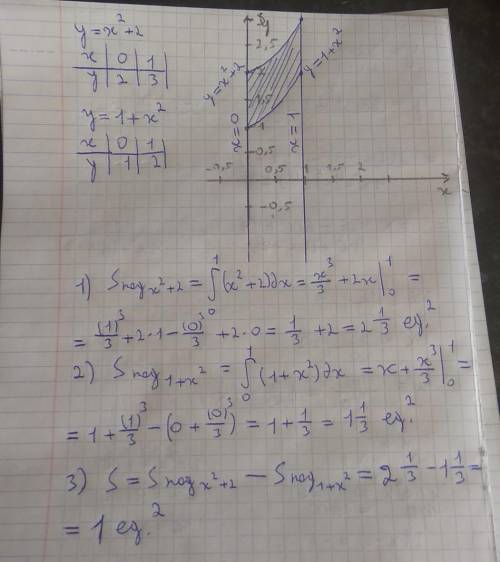 y = x² + 2
x | 0 | 1
y | 2 | 3
y = 1 + x²
x | 0 | 1
y | 1 | 2
y
2,5
2
1,5
1
0,5
-0,5
-0,5 0,5 1 2
x
y = x² + 2
y = 1 + x²
x = 0
x = 1
1) S под x²+2 = ∫₀¹ (x² + 2)dx = x³/3 + 2x |₀¹ =
= (1)³/3 + 2·1 - (0)³/3 + 2·0 = 1/3 + 2 = 2 1/3 ед.²
2) S под 1+x² = ∫₀¹ (1 + x²)dx = x + x³/3 |₀¹ =
= 1 + (1)³/3 - (0 + (0)³/3) = 1 + 1/3 = 1 1/3 ед.²
3) S = S под x²+2 - S под 1+x² = 2 1/3 - 1 1/3 =
= 1 ед.²